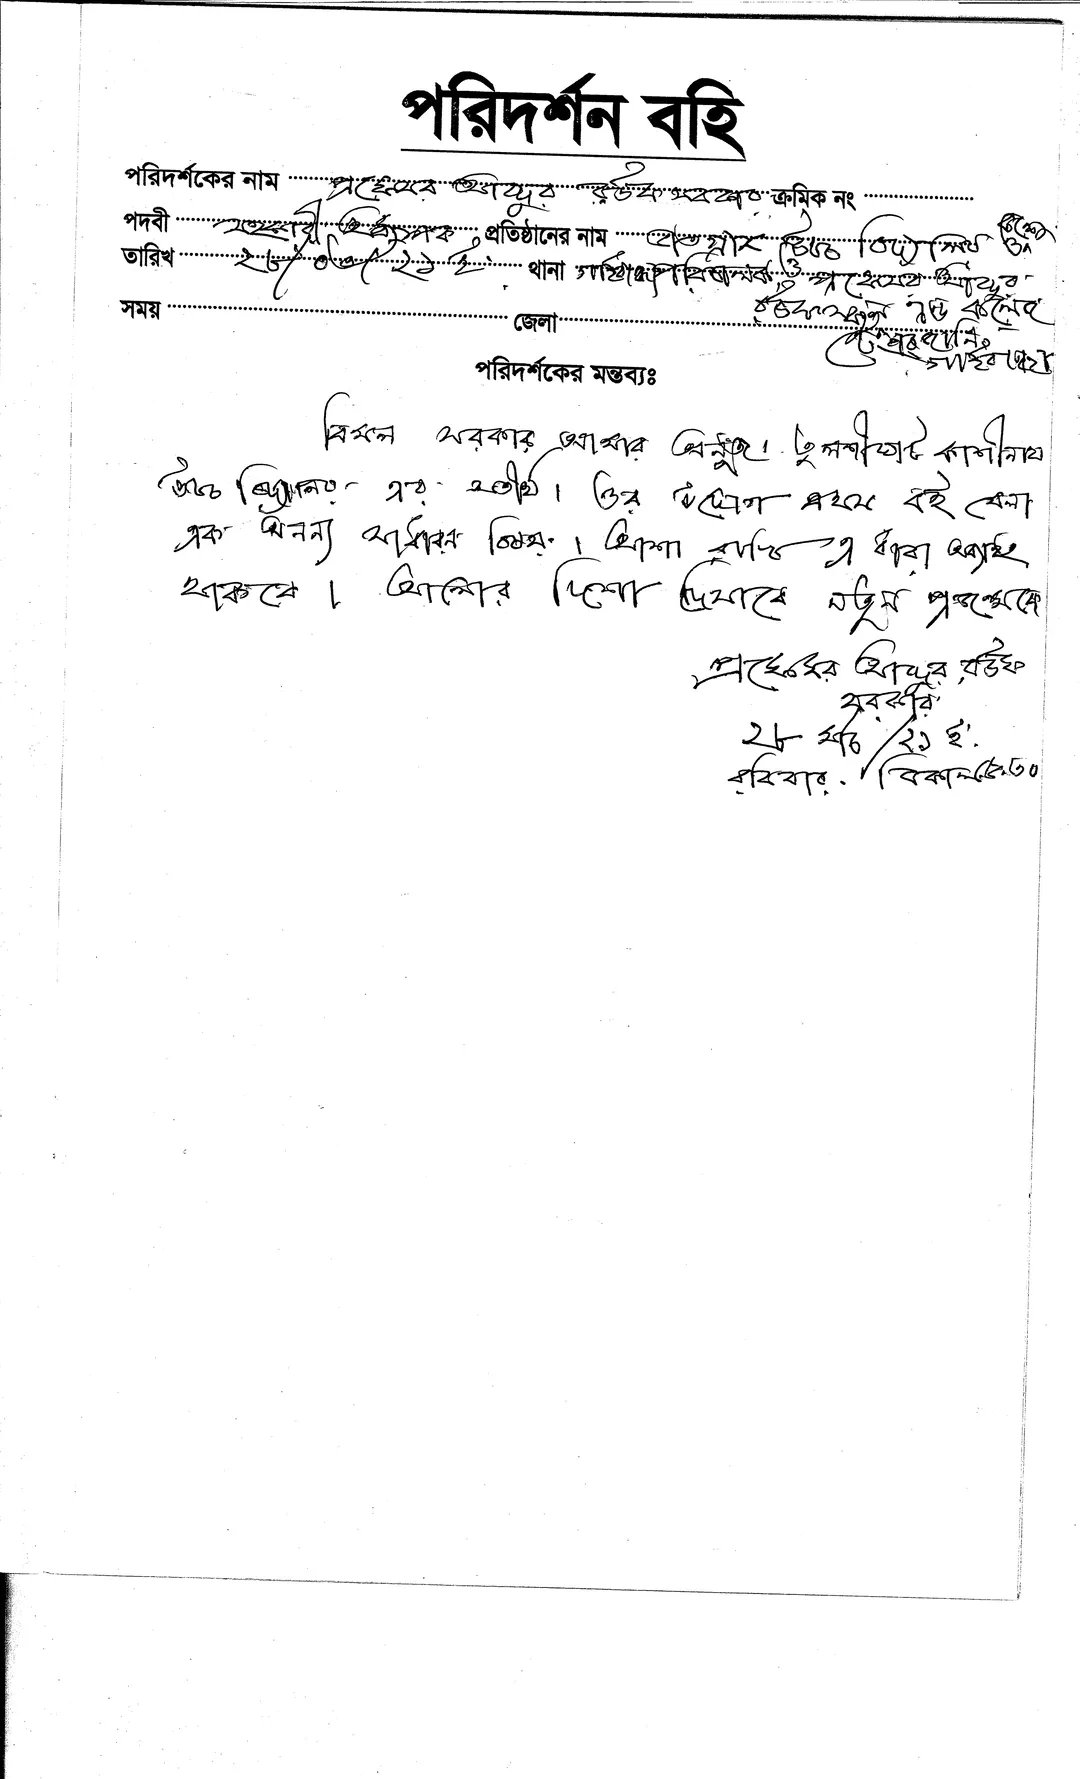 পরিদর্শন বহি
পরিদর্শকের নাম প্রফেসর আব্দুর রউফ সরকার ক্রমিক নং
পদবী সহকারী অধ্যাপক, প্রতিষ্ঠানের নাম উচ্চ বিদ্যালয়
তারিখ ২৮/০৩/২১ ইং থানা ও প্রফেসর আব্দুর
রউফ কলেজ
সময় জেলা
পরিদর্শকের মন্তব্যঃ
বিমল সরকার আমার অনুজ। তুলশীঘাট কাশীনাথ
উচ্চ বিদ্যালয় এর সতীর্থ। ওর বই মেলা
এক অনন্য সাধারন বিষয়। আশা রাখি এ ধারা অব্যাহত
থাকবে। আলোর দিশা দিখাবে নতুন প্রজন্মকে
প্রফেসর আব্দুর রউফ
সরকার
২৮ মার্চ/২১ ইং
রবিবার. বিকাল ৫.৩০